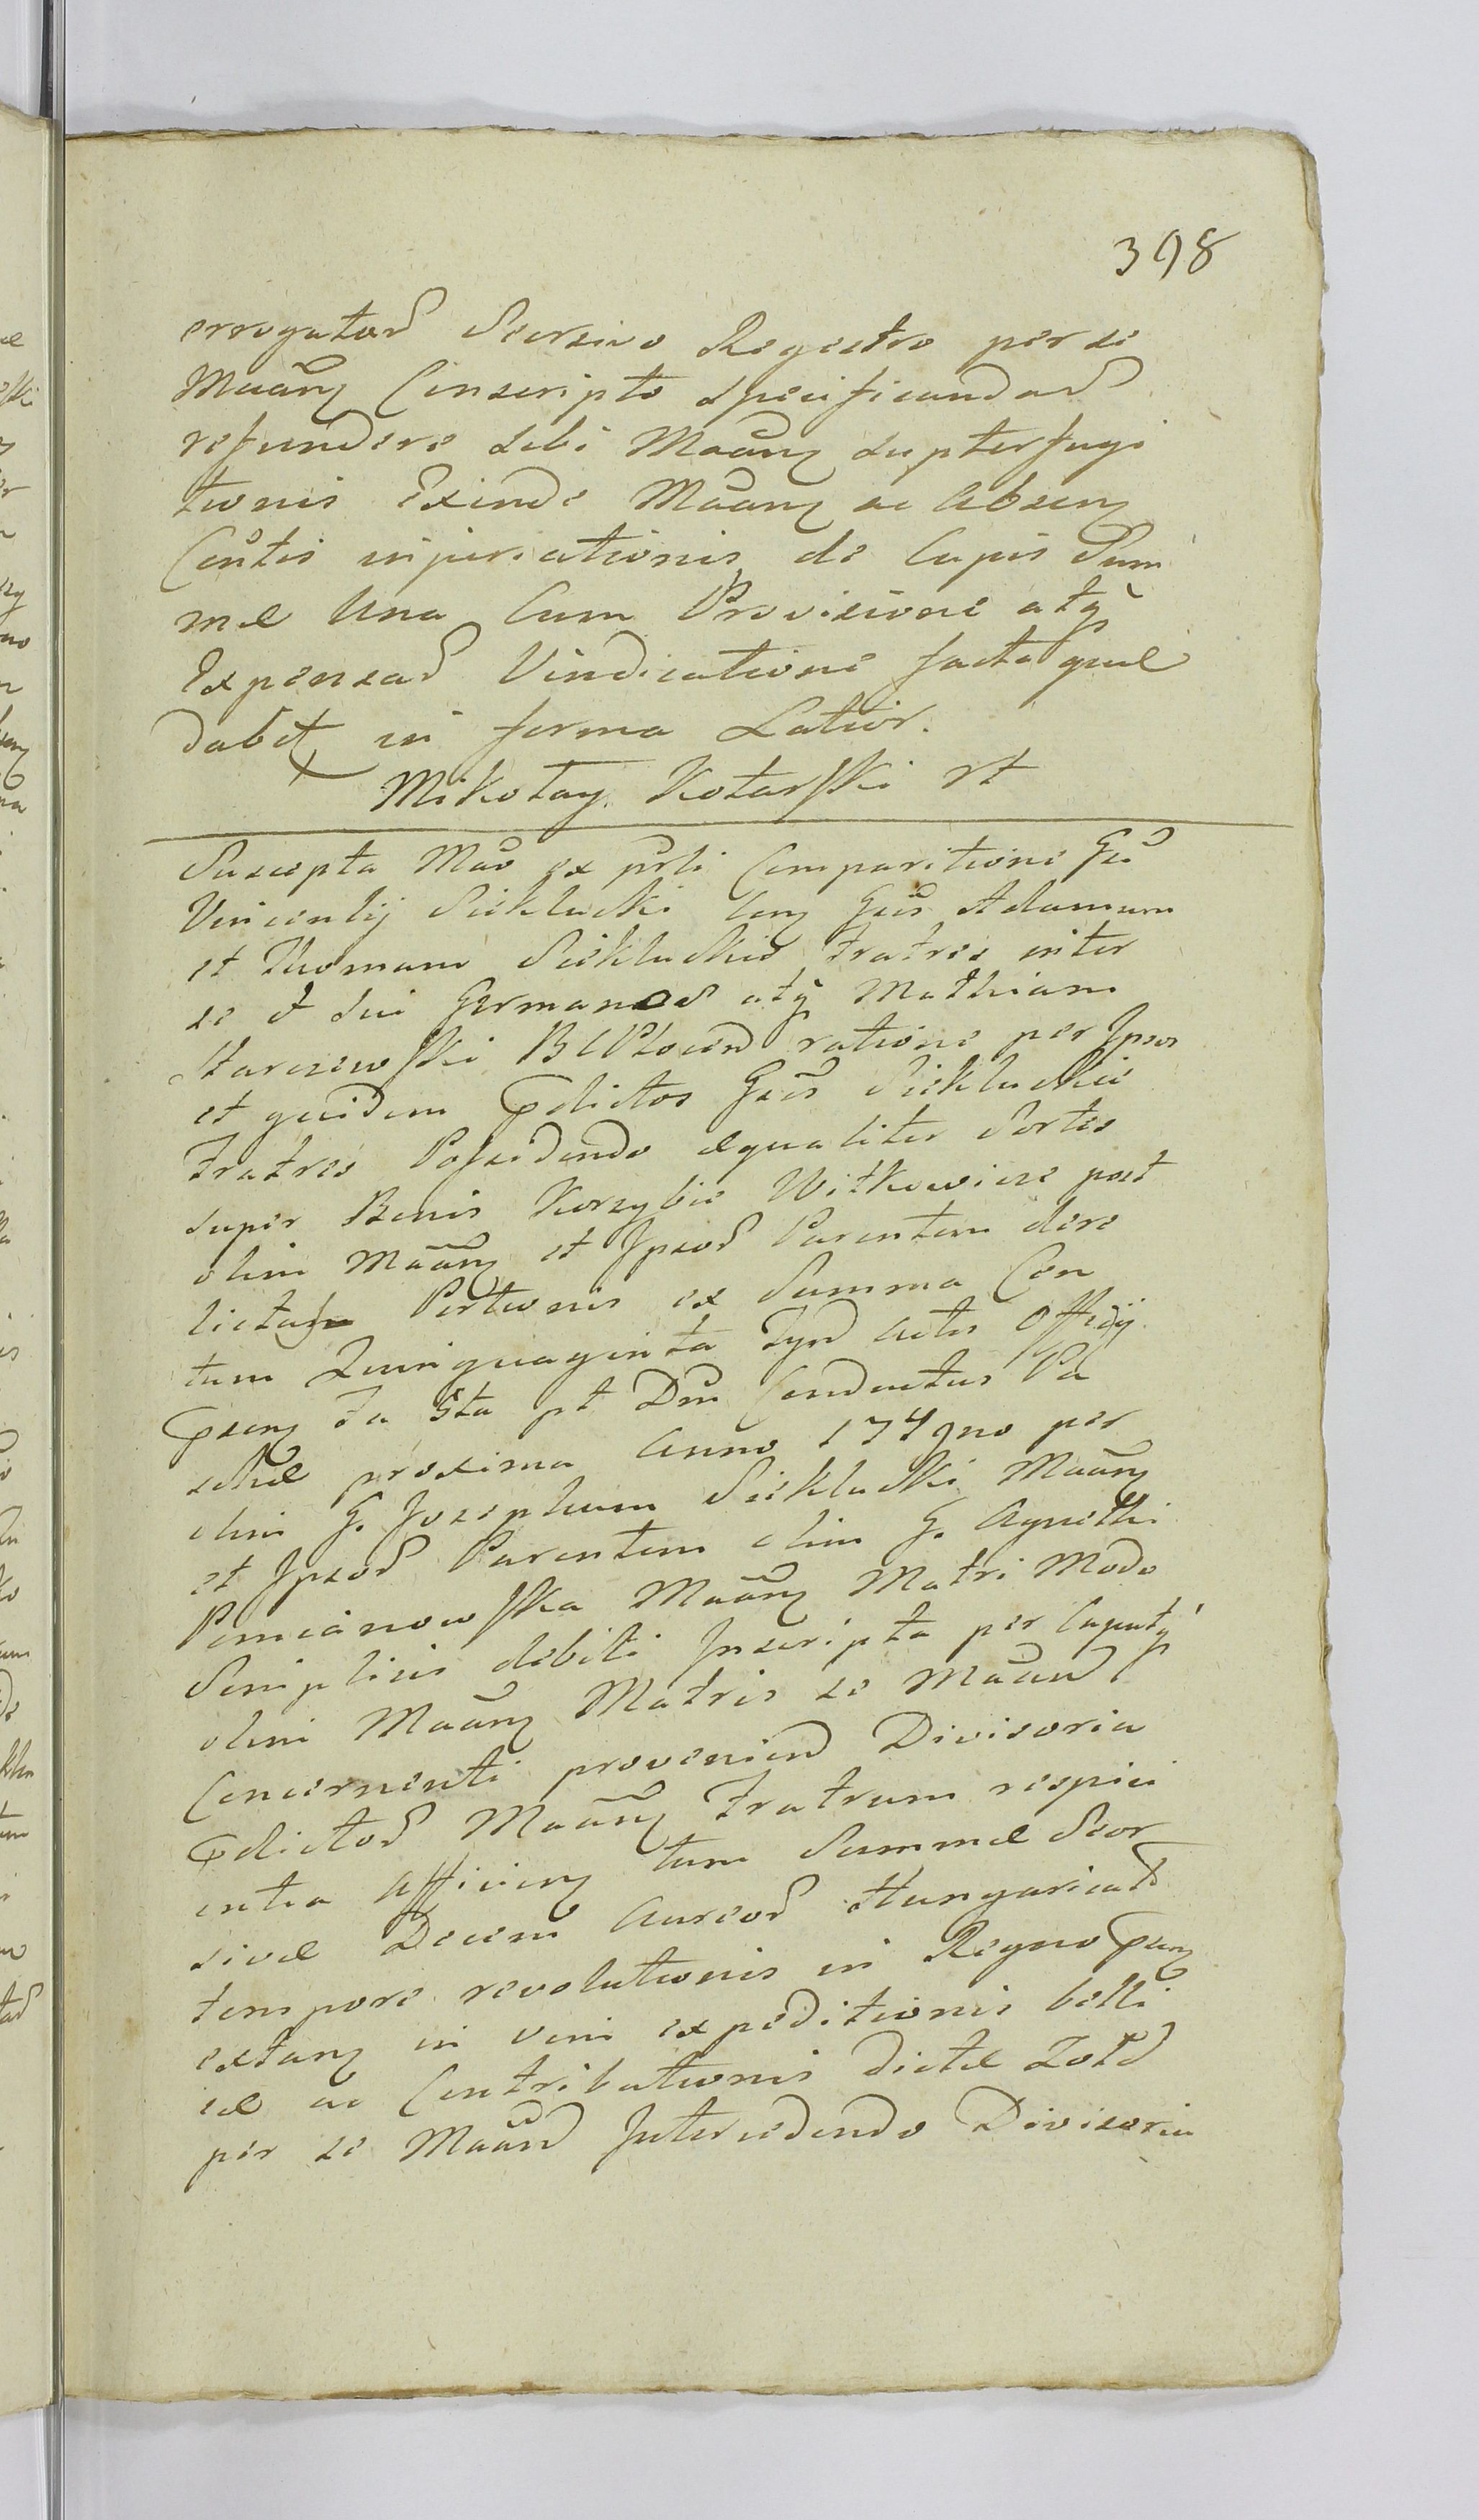 398
errogator Seorsivo Regestro per se
Maãnẽ Conscripto Specificandor
refundere sibi Maãnẽ supterfugi
tionis Exinde Maãnẽ ac Absenẽ
Contis injuriationis de Cujus Sum
mæ Una Cum Provisione atq̃
Expensar Vindicatione facta quæ
dabit in forma Latior.
Mikołay Kotarski rt
Suscepta Mão ex prli Comparitione Gsi
Vincentij Siekłucki Conẽ Gsos Adamum
et Thomam Siekłuckie Fratres inter
se et sui Germanos atq̃ Mathiam
Starczewski BCPlocen ratione per Ipsos
et quidem pdictos Gsos Siekłuckie
Fratres Possidendo æqualiter Sortes
super Bonis Korzybie Witkowicze post
olim Maãnẽ et Ipsor Parentem dere
lictas Portionis ex Summa Cen
tum Quinquaginta Tyn Actis Officij
psenẽ Fa 5ta pt Dm Conductus Pa
schæ proxima Anno 1749no per
olim G. Josephum Siekłucki Maãnẽ
et Ipsor Parentem olim G. Agnethi
Pomianowska Maãnẽ Matri Modo
Simplicis debiti Inscripta per Caputq̃
olim Maãnẽ Matris se Maãn
Concernenti provenien Divisoria
pdictor Maãnẽ Fratrum respici
entia Afficienẽ tum Summæ Seor
sivæ Decem Aureor Hungarical
tempore revolutionis in Regno psenẽ
extanẽ in vim expeditionis belli
cæ ac Contributionis dictæ
per se Maãn Intercedendo Divisoria